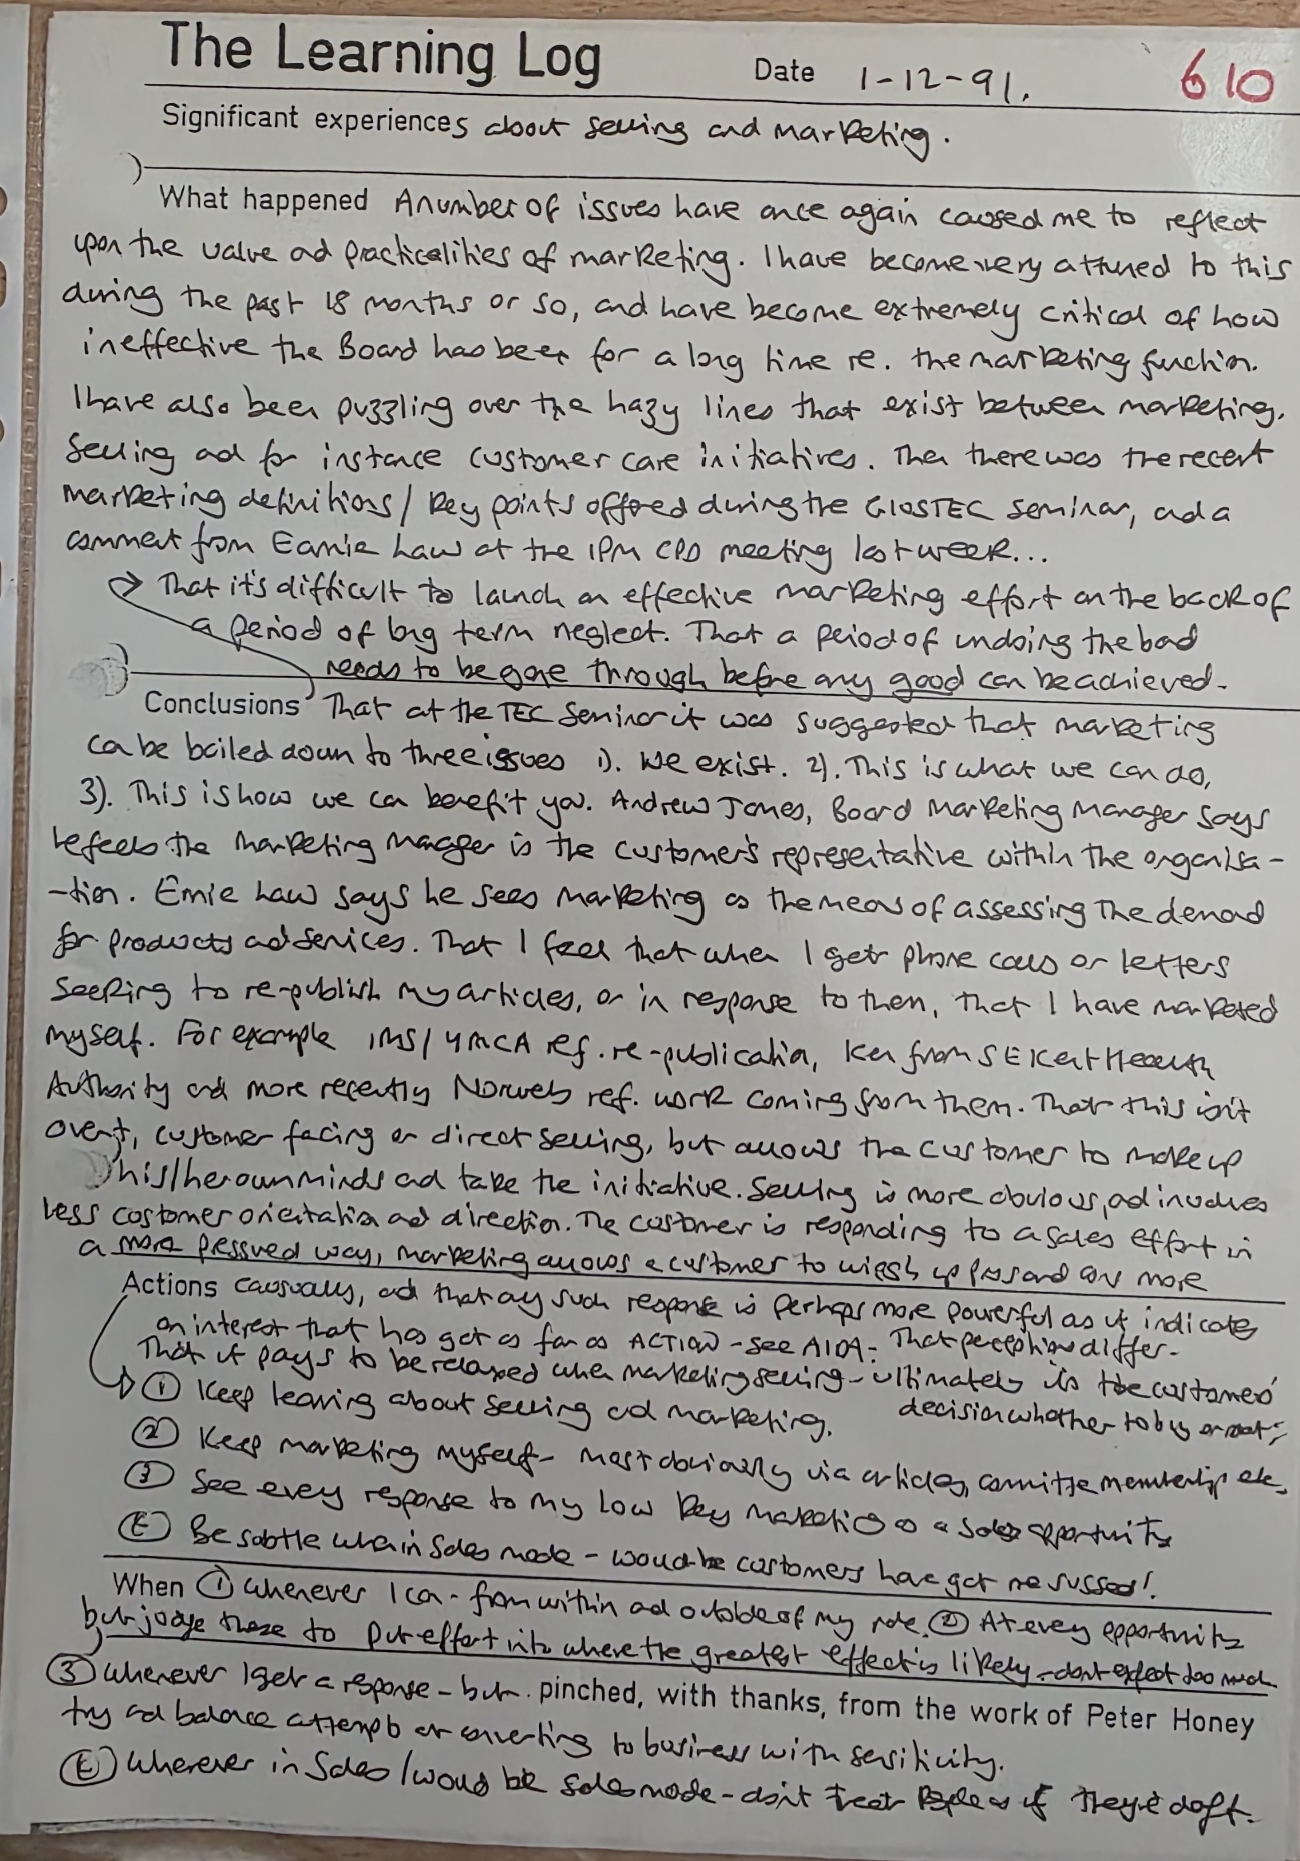 The Learning Log Date 1-12-91. 610
Significant experiences about selling and marketing.
What happened A number of issues have once again caused me to reflect
upon the value ad practicalities of marketing. I have become very attuned to this
during the past 18 months or so, and have become extremely critical of how
ineffective the Board has been for a long time re. the marketing function.
I have also been puzzling over the hazy lines that exist between marketing,
selling ad for instance customer care initiatives. Then there was the recent
marketing definitions / key points offered during the GlosTEC seminar, ad a
comment from Earnie Law at the IPM CPD meeting last week...
→ That it's difficult to launch an effective marketing effort on the back of
a period of long term neglect. That a period of undoing the bad
needs to be gone through before any good can be achieved.
Conclusions That at the TEC seminar it was suggested that marketing
ca be boiled down to three issues 1). We exist. 2). This is what we can do,
3). This is how we can benefit you. Andrew Jones, Board Marketing Manager says
he feels the marketing manager is the customer's representative within the organisa-
-tion. Ernie Law says he sees marketing as the means of assessing the demand
for products ad services. That I feel that when I get phone calls or letters
seeking to re-publish my articles, or in response to them, that I have marketed
myself. For example IMS / YMCA ref. re-publication, Ken from SE Kent Health
Authority and more recently Norweb ref. work coming from them. That this isn't
overt, customer facing or direct selling, but allows the customer to make up
his/her own minds ad take the initiative. Selling is more obvious, ad involves
less customer orientation ad direction. The customer is responding to a sales effort in
a more pressured way, marketing allows a customer to weigh up pros and cons more
Actions casually, ad that any such response is perhaps more powerful as it indicates
an interest that has got as far as ACTION - see AIDA. That perceptions differ.
That it pays to be relaxed when marketing/selling - ultimately its the customers'
decision whether to buy or not.
① Keep learning about selling ad marketing.
② Keep marketing myself - most obviously via articles, committee membership etc.
③ See every response to my low key marketing as a sales opportunity
④ Be subtle when in sales mode - would-be customers have got me sussed!
When ① Whenever I can - from within ad outside of my role. ② At every opportunity
but judge these to put effort into where the greatest effect is likely - don't expect too much
③ Whenever I get a response - but
pinched, with thanks, from the work of Peter Honey
try ad balance attempts at converting to business with sensitivity.
④ Wherever in sales / would be sales mode - don't treat people as if they're daft.